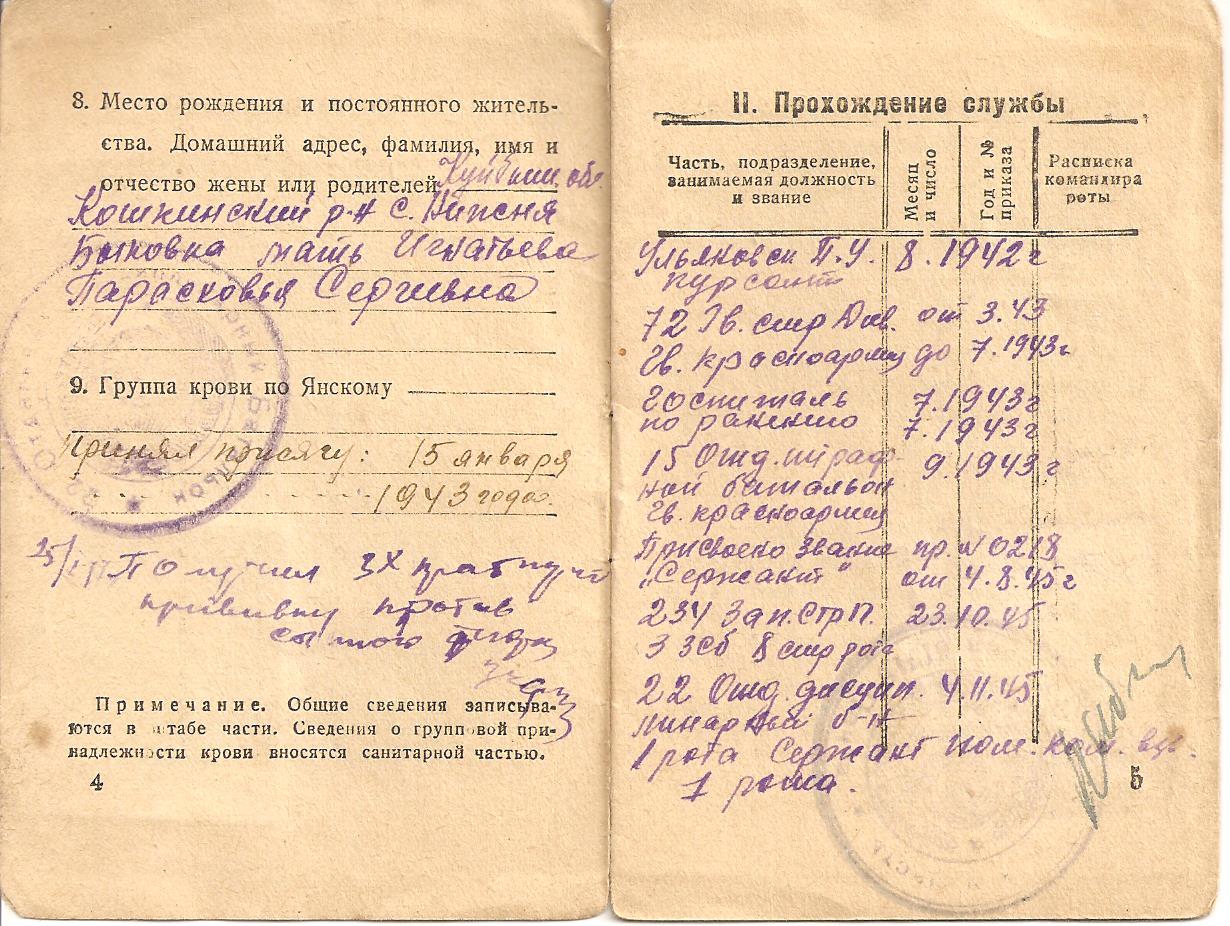 8. Место рождения и постоянного житель-
ства. Домашний адрес, фамилия, имя и
отчество жены или родителей Куйбыш. об.
Кошкинский р-н с. Нижня
Быковка мать Игнатьева
Парасковья Сергивна
9. Группа крови по Янскому
принял присягу: 15 января
1943 года.
Получил 3х кратную
прививку против
Примечание. Общие сведения записыва-
ются в штабе части. Сведения о групповой при-
надлежности крови вносятся санитарной частью.
4
II. Прохождение службы
Часть, подразделение,
занимаемая должность
и звание
Месяц
и число
Год и №
приказа
Расписка
командира
роты
Ульяновск П.У. 8.1942г
курсант
72 Гв. стр Див. от 3.43
Гв. красноармец до 7.1943г
Госпиталь 7.1943г
по ранению 7.1943г
15 Отд. штраф- 9.1943г
ной батальон
Гв. красноармец
Присвоено звание пр. № 0218
„Сержант" от 4.8.45г
234 Зап. Стр П. 23.10.45
3 ЗСб 8 стр рота
22 Отд. дисцип. 4.11.45
линарный б-н
1 рота Сержант пом. ком. вз.
1 рота.
5